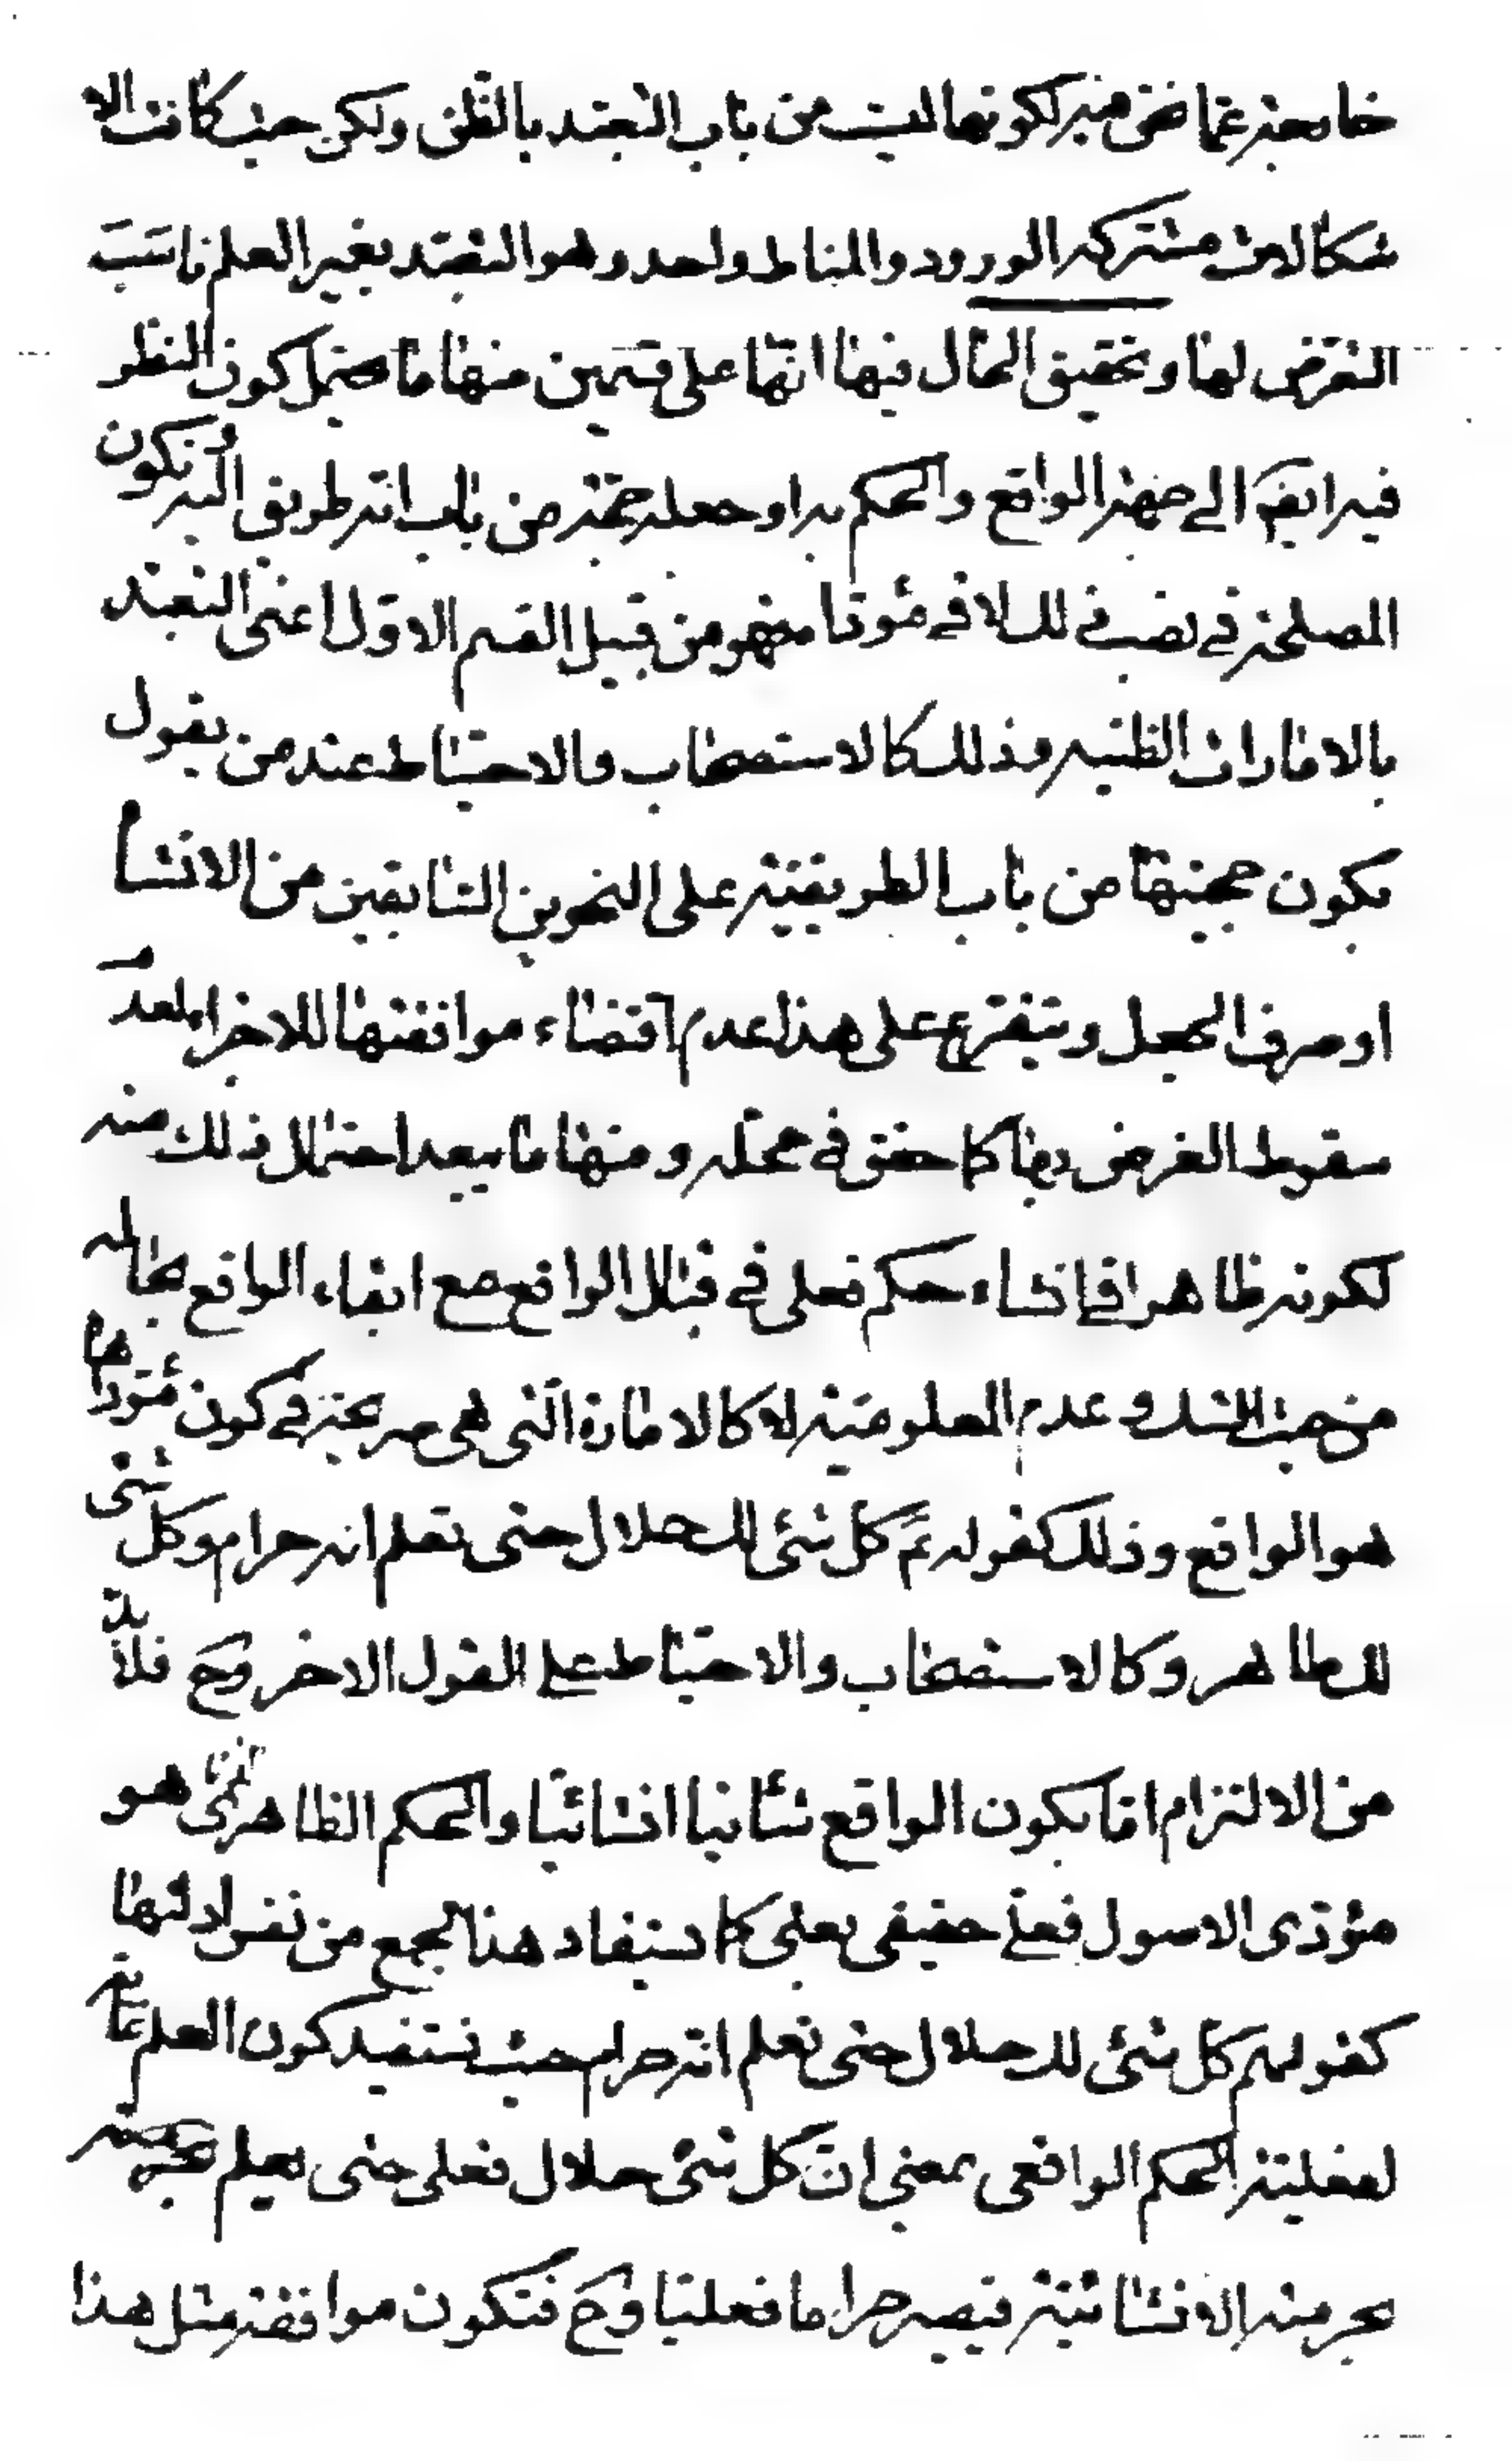 خارجة عما نحن فيه لكونها ليست من باب التعبد بالظن ولكن حيث كانت الا
شكالات مشتركة الورود والمناط واحد وهو التعبد بغير العلم ناسب
التعرض لها وتحقيق الحال فيها انها على قسمين منها ما يحتمل كون النظر
فيه ايضا الى جهة الواقع والحكم به او جعله حجة من باب انه طريق اليه تكون
المصلحة في نصب ذلك لا في مؤداه فهو من قبيل القسم الاول اعنى التعبد
بالامارات الظنيه وذلك كالاستصحاب والاحتياط عند من يقول
بكون حجيتها من باب الطريقيّة على النحوين السابقين من الانشاء
او صرف الجعل ويتفرع على هذا عدم اقتضاء موافقتها للاجزاء لعدم
سقوط الغرض بها كما حقق في محله ومنها ما يبعد احتمال ذلك منه
لكونه ظاهرا في انشاء حكم فعلى في قبال الواقع مع ابقاء الواقع بحاله
من حيث الشك وعدم المعلومية لا كالامارة التى هى صريحة في كون مؤداها
هو الواقع وذلك كقوله ع كل شئى لك حلال حتى تعلم انه حرام وكل شئى
لك طاهر وكالاستصحاب والاحتياط على القول الاخر وح فلا بد
من الالتزام اما بكون الواقع شانيا انشائيا والحكم الظاهرى هو
مؤدى الاصول فعلى حقيقى بعلى كما يستفاد هذا الجمع من نفس ادلتها
كقولهم كل شئى لك حلال حتى تعلم انه حرام حيث يستفيد كون العلم غاية
لفعلية الحكم الواقعى بمعنى ان كل شئى حلال فعلى حتى يعلم
بحرمته الانشائية فيصير حراما فعليا وح فتكون موافقة مثل هذا